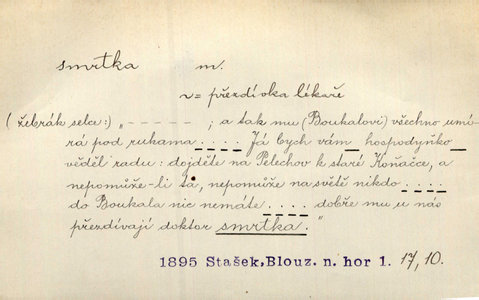 smrtka m.
~ = přezdívka lékaře
(žebrák selce:) „ - - - - - ; a tak mu (Boukalovi) všechno umí-
rá pod rukama . . . . Já bych vám hospodyňko
věděl radu : dojděte na Pelechov k staré Koňačce, a
nepomůže-li ta, nepomůže na světě nikdo . . . .
do Boukala nic nemáte . . . . dobře mu u nás
přezdívají doktor smrtka. "
1895 Stašek, Blouz. n. hor 1. 17, 10.